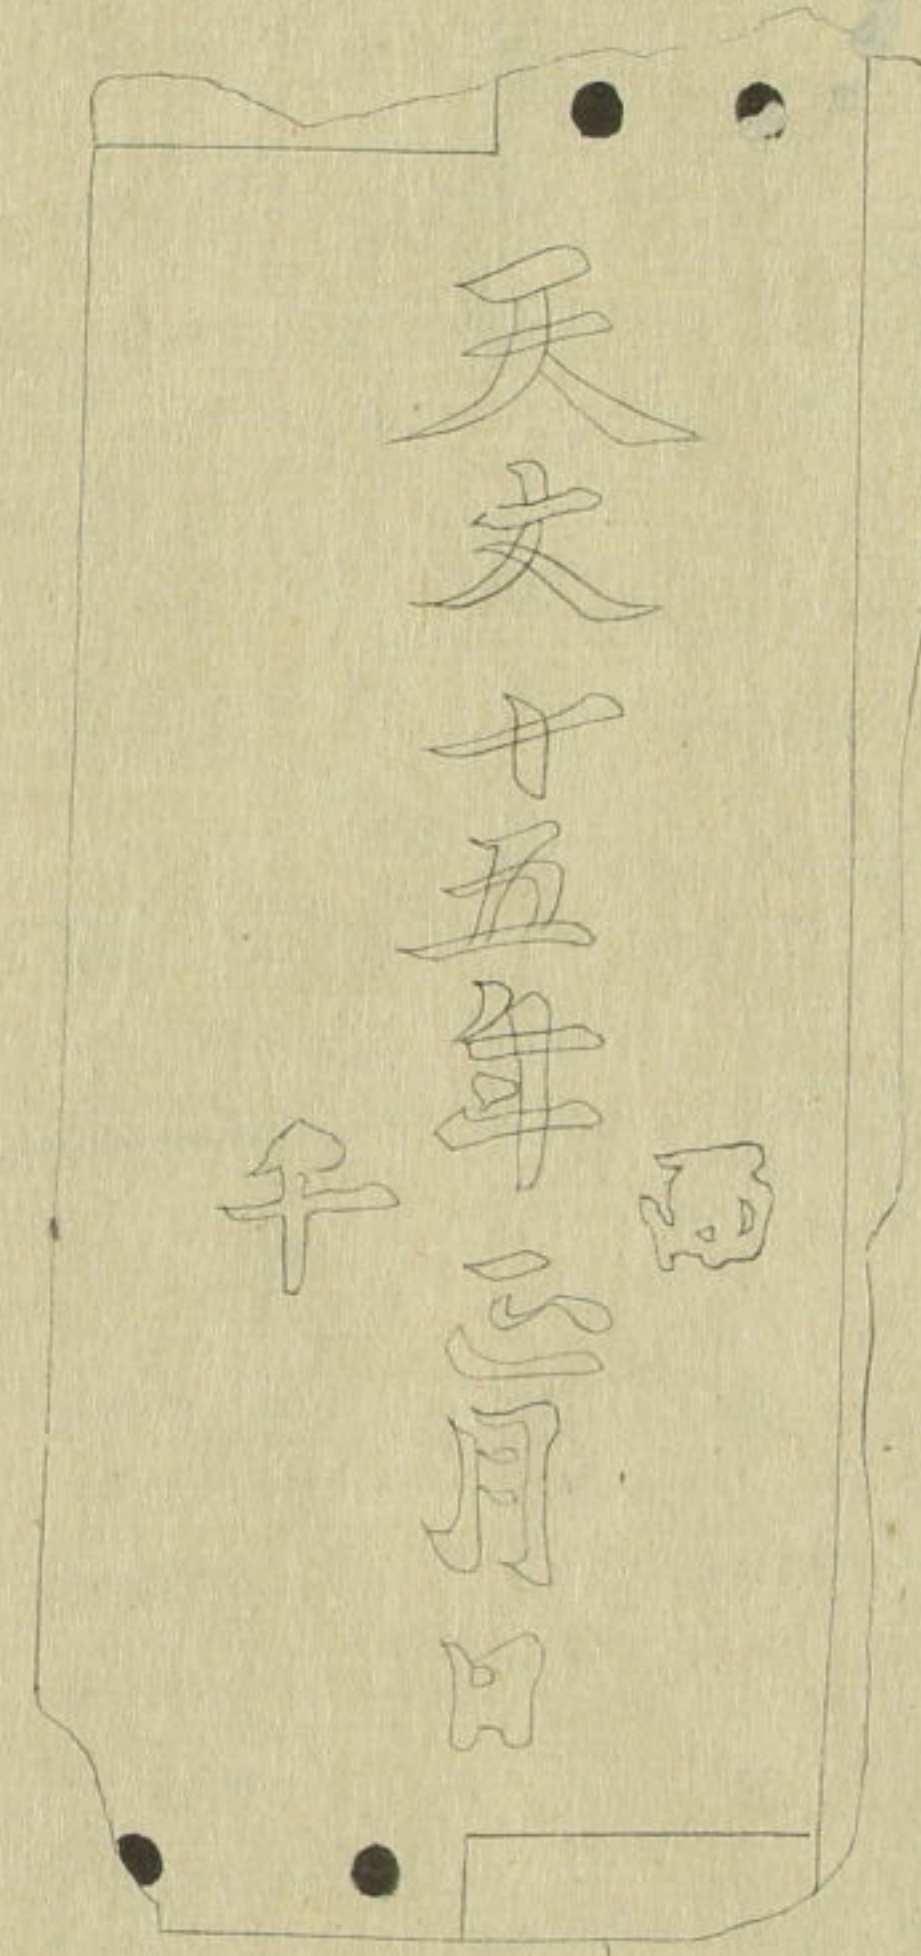 丙
天文十五年三月日
午